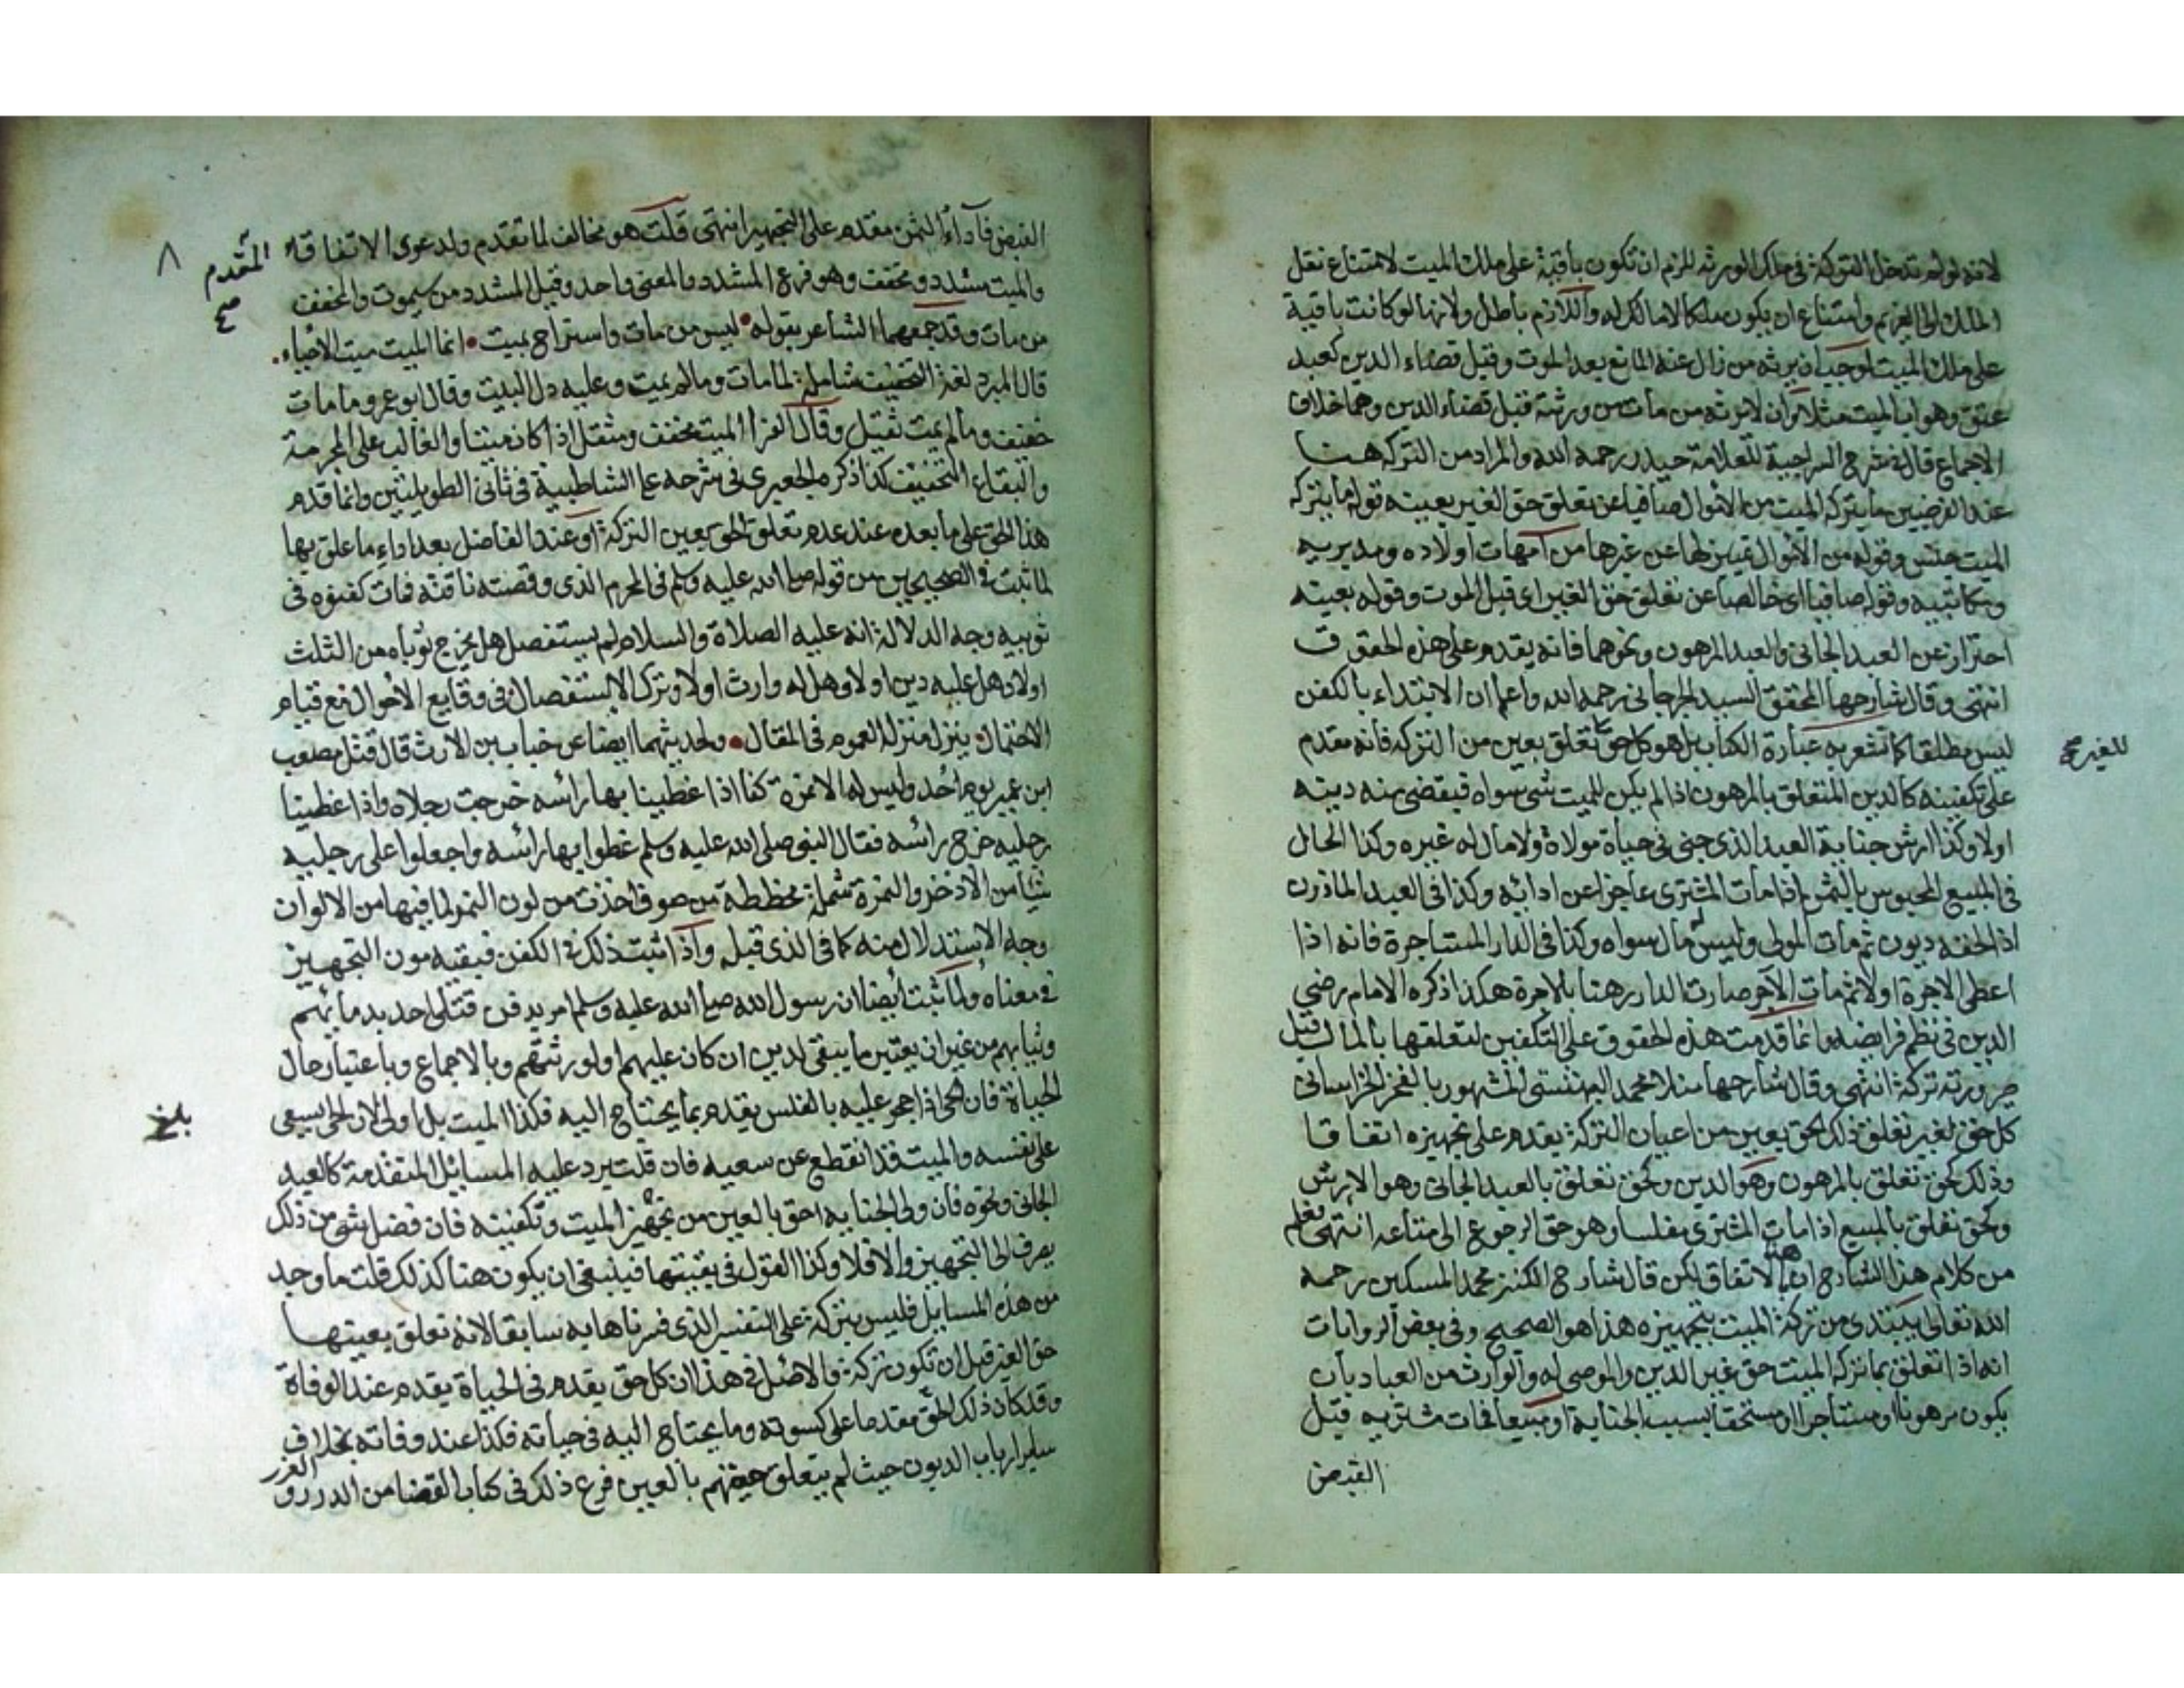 لانه لو لم تدخل التركة فى ملك الورثه للزم ان تكون باقية على ملك الميت لامتناع نقل
الملك الى الغريم وامتناع ان يكون ملكا لا مالك له واللازم باطل ولانها لو كانت باقية
على ملك الميت لوجب ان يرثه من زال عنه المانع بعد الموت وقبل قضاء الدين كعبد
عتق وهو ابن الميت مثلا وان لا يرثه من مات من ورثته قبل قضاء الدين وهما خلاف
الاجماع قاله فى شرح السراجية للعلامة حيدر رحمه الله والمراد من التركه هنا
عند الفرضيين ما يتركه الميت من الأموال صافيا عن تعلق حق الغير بعينه قوله ما يتركه
الميت جنس وقوله من الأموال تمييز لها عن غيرها من امهات اولاده ومدبريه
ومكاتبيه وقوله صافيا اى خالصا عن تعلق حق الغير اى قبل الموت وقوله بعينه
احتراز عن العبد الجانى والعبد المرهون ونحوهما فانه يقدم على هذه الحقوق
انتهى وقال شارحها المحقق السيد الجرجانى رحمه الله واعلم ان الابتداء بالكفن
ليس مطلقا كما تشعر به عبارة الكتاب بل هو كل حق تعلق بعين من التركه فانه مقدم
للغير صح
على تكفينه كالدين المتعلق بالمرهون اذا لم يكن للميت شئ سواه فيقضى منه دينه
اولا وكذا ارش جناية العبد الذى جنى فى حياة مولاه ولا مال له غيره وكذا الحال
فى المبيع المحبوس بالثمن اذا مات المشترى عاجزا عن ادائه وكذا فى العبد الماذون
اذا لحقه ديون ثم مات المولى وليس له مال سواه وكذا فى الدار المستاجرة فانه اذا
اعطى الاجرة اولا ثم مات الآجر صارت الدار رهنا بالاجرة هكذا ذكره الامام رضى
الدين فى نظم فرايضه وانما قدمت هذه الحقوق على التكفين لتعلقها بالمال قبل
صيرورته تركة انتهى وقال شارحها منلا محمد المشهور بالفخر الخراسانى
كل حق لغير تعلق ذلك الحق بعين من اعيان التركة يقدم على تجهيزه اتفاقا
وذلك كحق تعلق بالمرهون وهو الدين وكحق تعلق بالعبد الجانى وهو الارش
وكحق تعلق بالمبيع اذا مات المشترى مفلسا وهو حق الرجوع الى متاعه انتهى فعلم
من كلام هذا الشارح ان هذا الاتفاق لكن قال شارح الكنز محمد المسكين رحمه
الله تعالى يبتدى من تركة الميت بتجهيزه هذا هو الصحيح وفى بعض الروايات
انه اذا تعلق بما تركه الميت حق غير الدين والموصى له والوارث من العباد بان
يكون مرهونا او مستاجرا او مستحقا بسبب الجناية او مبيعا فمات مشتريه قبل
القبض
القبض فأداء الثمن مقدم على التجهيز انتهى قلت هو مخالف لما تقدم ولدعوى الاتفاقا
المتقدم
صح
٨
والميت مشدد ومخفف وهو فرع المشدد والمعنى واحد وقيل المشدد من سيموت والمخفف
من مات وقد جمعهما الشاعر بقوله ليس من مات واستراح بميت انما الميت ميت الاحياء
قال المبرد لغة التخفيف شاملة لما مات وما لم يمت وعليه دل البيت وقال ابو عمرو ما مات
خفيف وما لم يمت ثقيل وقال الفرا الميت مخفف ومثقل اذا كان ميتا والغالب على
والبقاء التخفيف كذا ذكره الجعبرى فى شرحه على الشاطبية فى ثانى الطويلتين وانما قدم
هذا الحق على ما بعده عند عدم تعلق الحق بعين التركة او عند الفاضل بعد اداء ما علق بها
لما ثبت فى الصحيحين من قوله صلى الله عليه وسلم فى المحرم الذى وقصته ناقته فمات كفنوه فى
ثوبيه وجه الدلالة انه عليه الصلاة والسلام لم يستفصل هل يخرج ثوباه من الثلث
اولا وهل عليه دين اولا وهل له وارث اولا وترك الاستفصال فى وقايع الأحوال مع قيام
الاحتمال ينزل منزلة العموم فى المقال ولحديثهما ايضا عن خباب بن الارت قال قتل مصعب
ابن عمير يوم أحد وليس له الا نمرة كنا اذا غطينا بها رأسه خرجت رجلاه واذا غطينا
رجليه خرج رأسه فقال النبى صلى الله عليه وسلم غطوا بها رأسه واجعلوا على رجليه
شيأ من الاذخر والنمرة شملة مخططة من صوف اخذت من لون النمر لما فيها من الالوان
وجه الاستدلال منه كما فى الذى قبله واذا ثبت ذلك فى الكفن فبقية مون التجهيز
فى معناه ولما ثبت أيضا ان رسول الله صلى الله عليه وسلم امر بدفن قتلى احد بدمائهم
وثيابهم من غير ان يعتبر ما يبقى لدين ان كان عليهم او لورثتهم وبالاجماع وباعتبار حال
الحياة فان الحى اذا حجر عليه بالفلس يقدم بما يحتاج اليه فكذا الميت بل اولى لان الحى يسعى
بلغ
على نفسه والميت قد انقطع عن سعيه فان قلت يرد عليه المسائل المتقدمة كالعبد
الجانى ونحوه فان ولى الجناية احق بالعين من تجهيز الميت وتكفينه فان فضل شئ من ذلك
يصرف الى التجهيز والا فلا وكذا القول فى بقيتها فينبغى ان يكون هنا كذلك قلت ما وجد
من هذه المسايل فليس بتركة على التفسير الذى فسرناها به سابقا لانه تعلق بعينها
حق الغير قبل ان تكون تركة والاصل فى هذا ان كل حق يقدم فى الحياة يقدم عند الوفاة
وقد كان ذلك الحق مقدما على كسوته وما يحتاج اليه فى حياته فكذا عند وفاته بخلاف
ساير ارباب الديون حيث لم يتعلق حقهم بالعين فرع ذلك فى كتاب القضا من الدرر والغرر